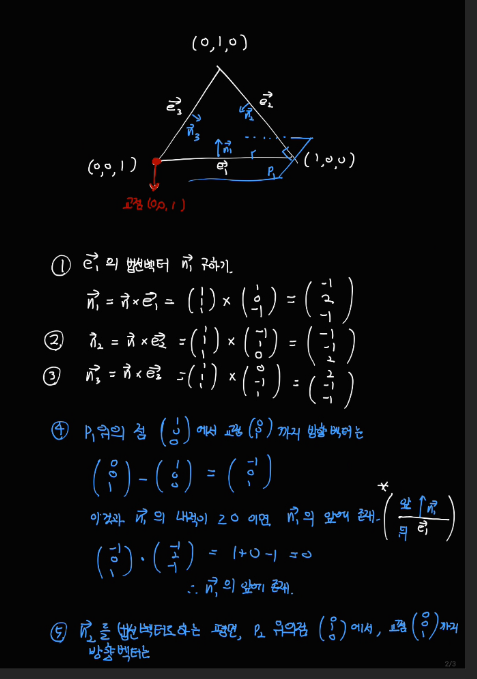 (0,1,0)
e₃→ e₂→
n₃→ n₂→
n₁→
(0,0,1) e₁→ r P₁ (1,0,0)
교점 (0,0,1)
① e₁→ 의 법선벡터 n₁→ 구하기.
n₁→ = n→ × e₁→ = (1 1 1) × (1 0 -1) = (-1 2 -1)
② n₂→ = n→ × e₂→ = (1 1 1) × (-1 1 0) = (-1 -1 2)
③ n₃→ = n→ × e₃→ = (1 1 1) × (0 -1 1) = (2 -1 -1)
④ P₁ 위의 점 (1 0 0) 에서 교점 (0 0 1) 까지 방향벡터는
(0 0 1) - (1 0 0) = (-1 0 1)
이것과 n₁→ 의 내적이 ≥0 이면, n₁→ 의 앞에 존재. * (앞 ↑ n₁→ 뒤 e₁→)
(-1 0 1) · (-1 2 -1) = 1+0-1 = 0
∴ n₁→ 의 앞에 존재.
⑤ n₂→ 를 법선벡터로하는 평면, P₂ 위의점 (0 1 0) 에서, 교점 (0 0 1) 까지
방향벡터는
2/3